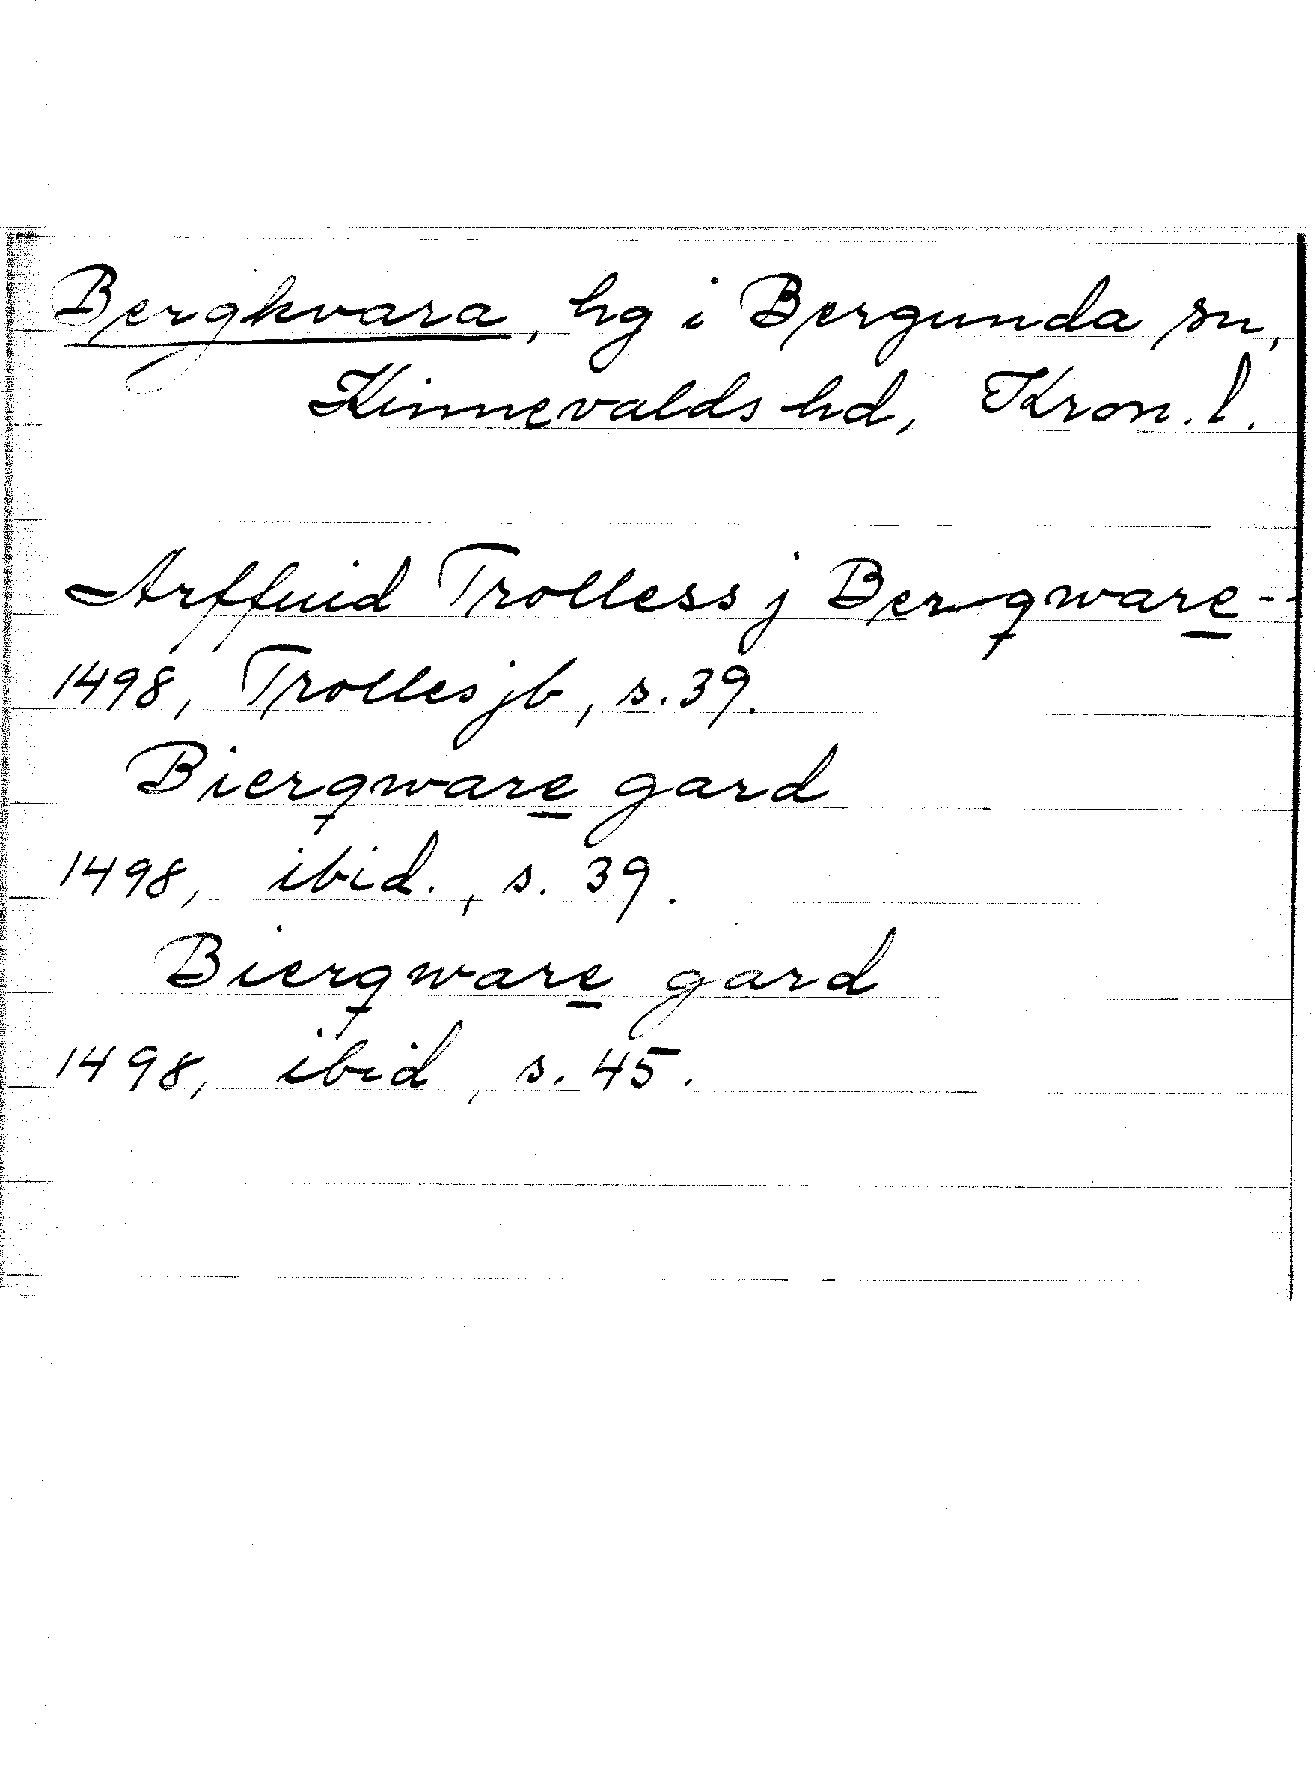 Bergkvara, hg i Bergunda sn,
Kinnevalds hd, Kron. l.
Arffuid Trolless j Berqware --
1498, Trolles jb, s. 39.
Bierqware gard
1498, ibid., s. 39.
Bierqware gard
1498, ibid, s. 45.